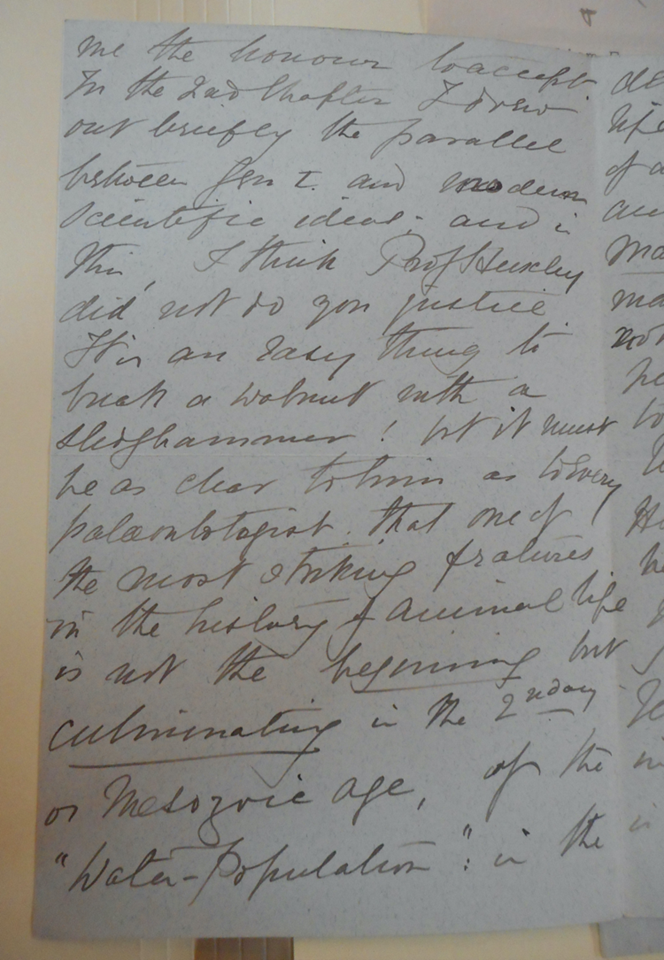 me the honour to accept
In the 2nd Chapter I drew
out briefly the parallel
between Gen I. and modern
scientific ideas. and in
this, I think Prof Huxley
did not do you justice
It is an easy thing to
break a walnut with a
sledghammer! but it must
be as clear to him as to every
palæontologist. that one of
the most striking features
in the history of animal life
is not the beginning but
culminating in the 2ndary
or Mesozoic age, of the
"Water-Population": in the